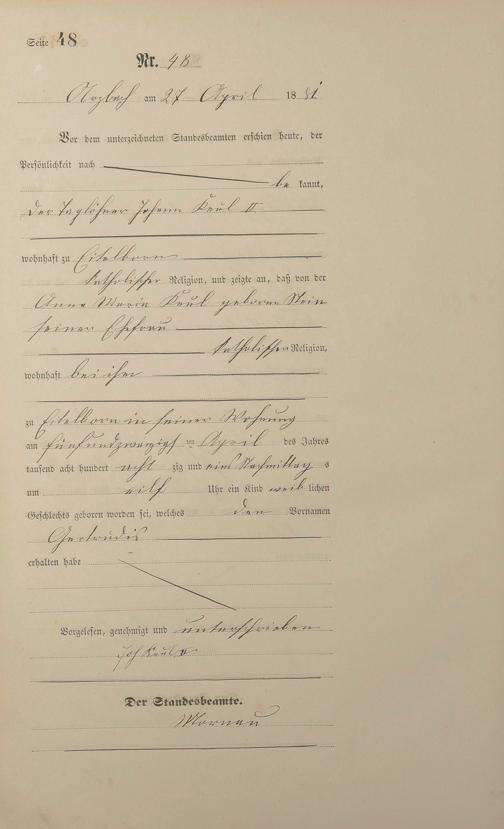 Seite 48
Nr. 48
Arzbach am 27 April 1881
Vor dem unterzeichneten Standesbeamten erschien heute, der
Persönlichkeit nach
be kannt,
der Taglöhner Johann Keul II
wohnhaft zu Eitelborn
katholischer Religion, und zeigte an, daß von der
Anna Maria Keul geborene Stein
seiner Ehefrau
katholischer Religion,
wohnhaft bei ihm
zu Eitelborn in seiner Wohnung
am fünfundzwanzigsten April des Jahres
tausend acht hundert acht zig und eins Nachmittag s
um eilf Uhr ein Kind weib lichen
Geschlechts geboren worden sei, welches den Vornamen
Gertrudis
erhalten habe
Vorgelesen, genehmigt und unterschrieben
Joh Keul II
Der Standesbeamte.